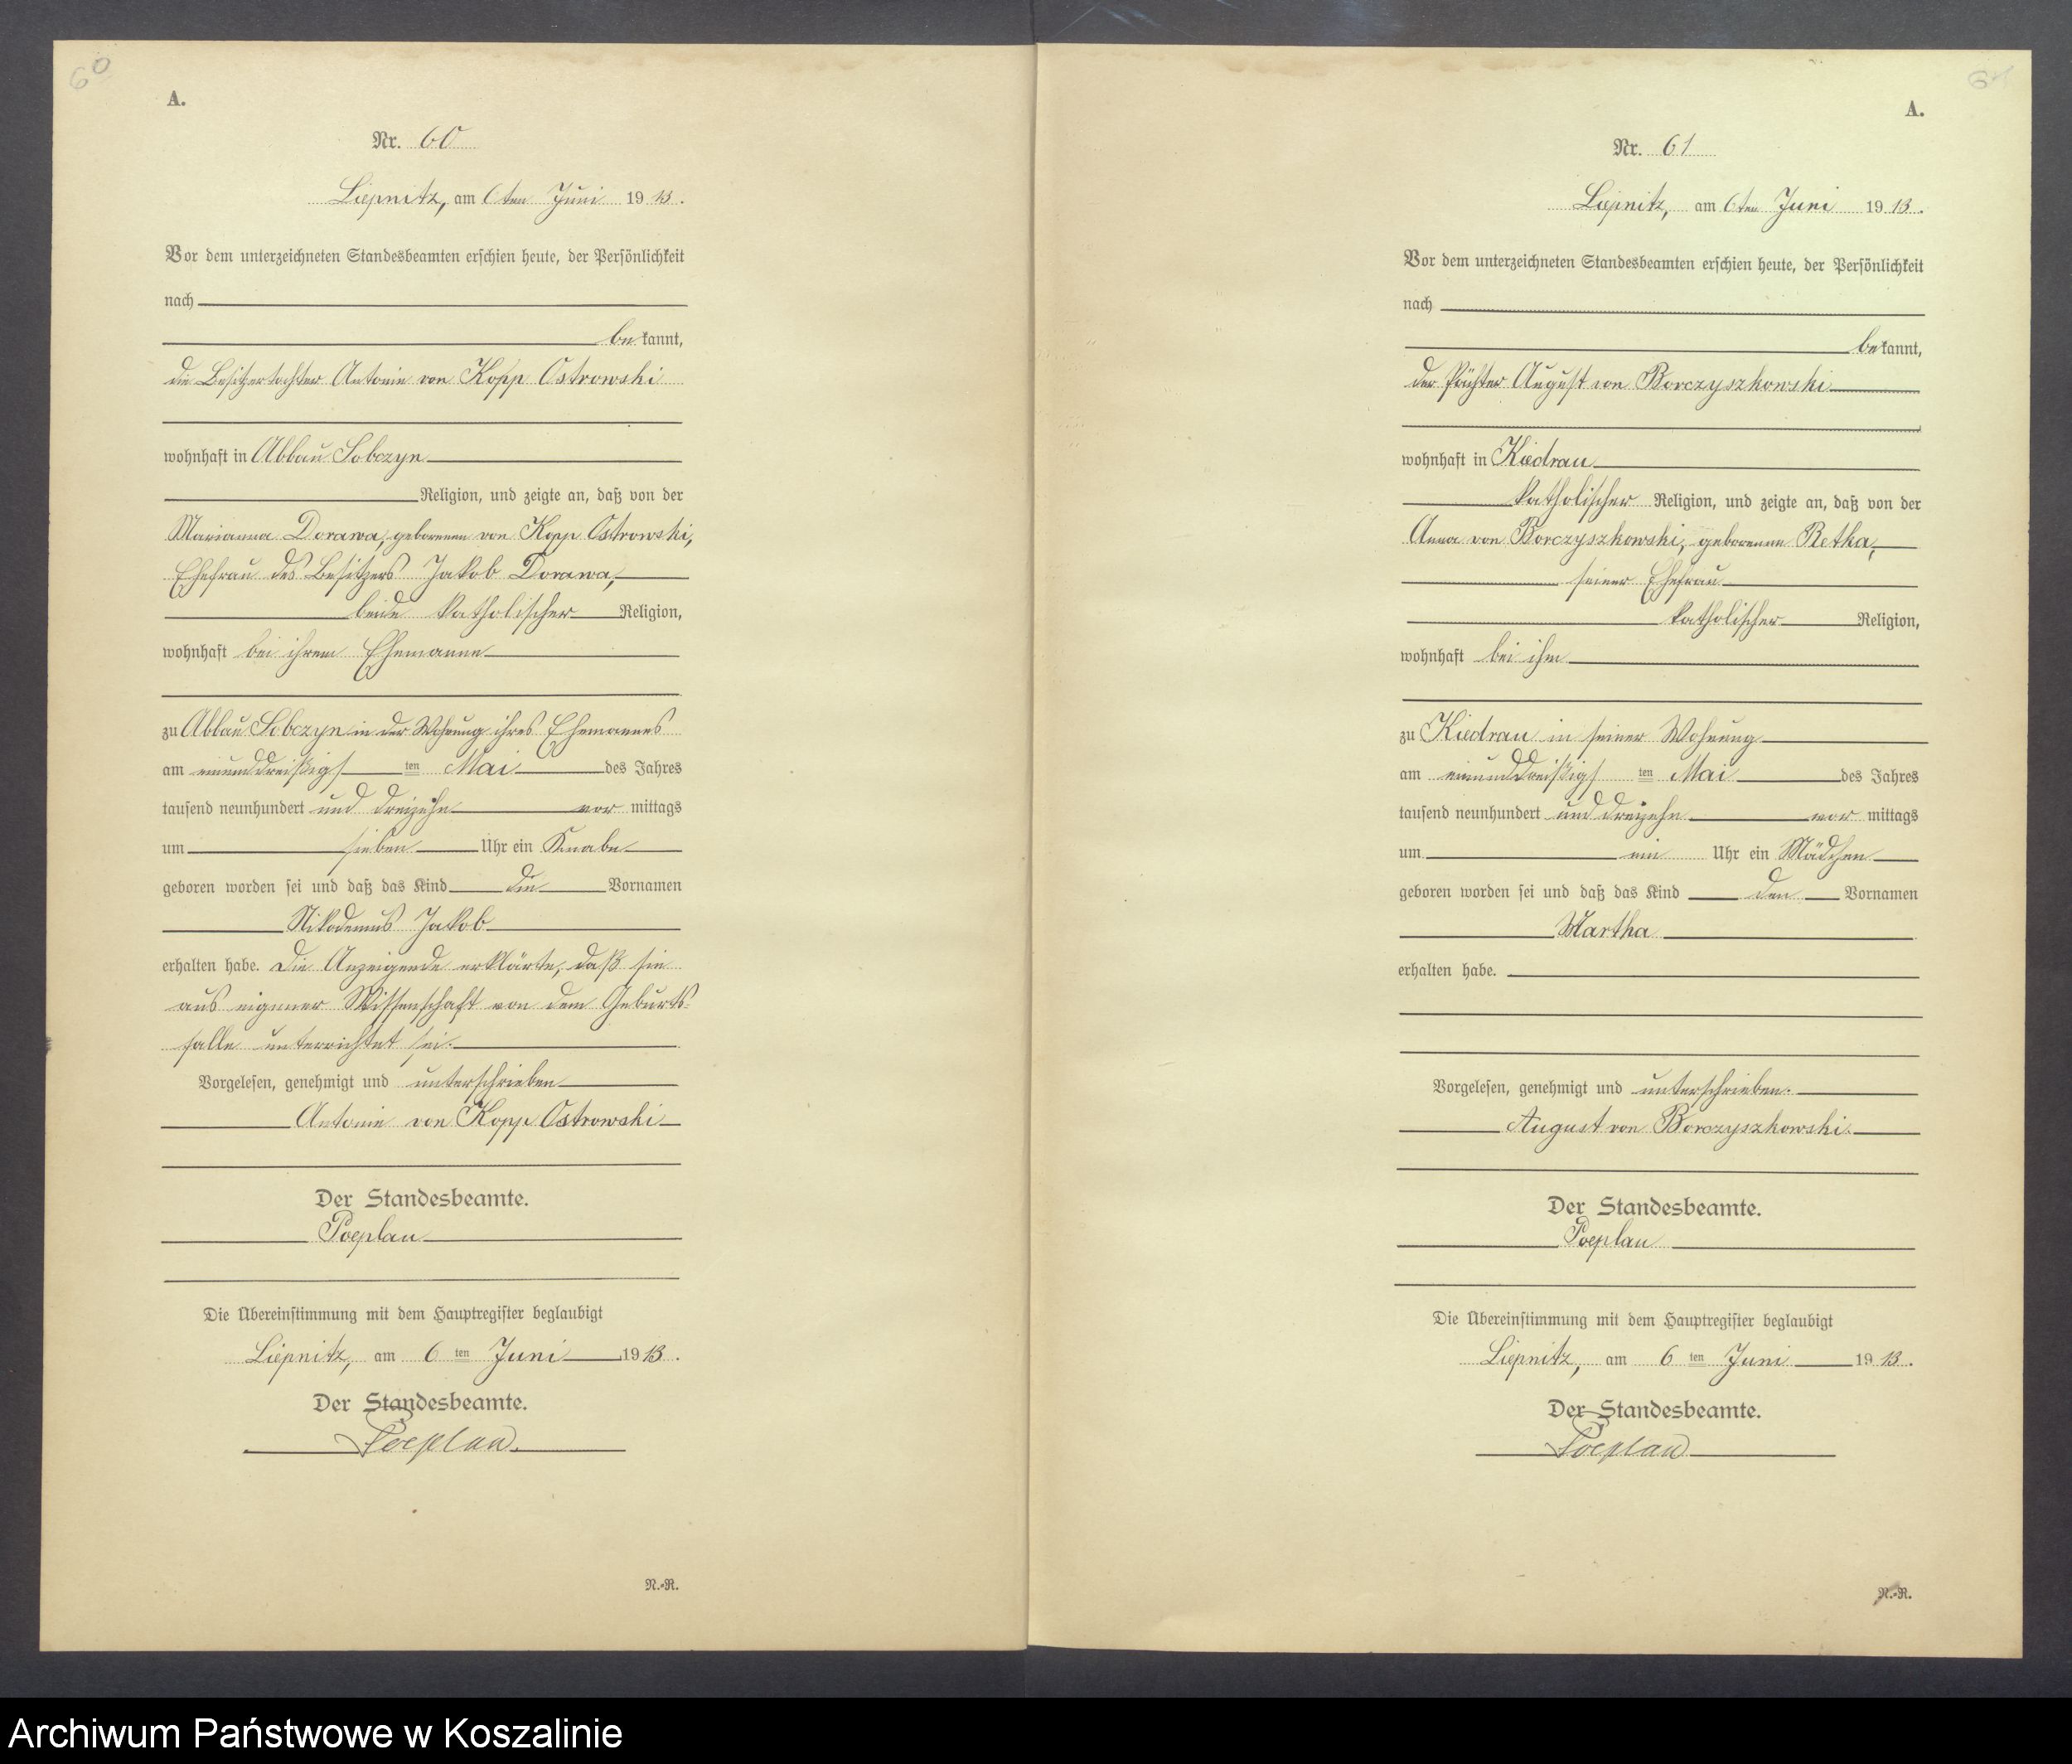 60
A.
Nr. 60
Liepnitz, am 6ten Juni 1913.
Vor dem unterzeichneten Standesbeamten erschien heute, der Persönlichkeit
nach
bekannt,
die Besitzertochter Antonie von Kopp Ostrowski
wohnhaft in Abbau Sobczyn
Religion, und zeigte an, daß von der
Marianna Dorawa, geborenen von Kopp Ostrowski,
Ehefrau des Besitzers Jakob Dorawa,
beide katholischer Religion,
wohnhaft bei ihrem Ehemanne
zu Abbau Sobczyn in der Wohnung ihres Ehemannes
am einunddreißigsten Mai des Jahres
tausend neunhundert und dreizehn vor mittags
um sieben Uhr ein Knabe
geboren worden sei und daß das Kind die Vornamen
Nikodemus Jakob
erhalten habe. Die Anzeigende erklärte, daß sie
aus eigener Wissenschaft von dem Geburts-
falle unterrichtet sei.
Vorgelesen, genehmigt und unterschrieben
Antonie von Kopp Ostrowski
Der Standesbeamte.
Poeplau
Die Übereinstimmung mit dem Hauptregister beglaubigt
Liepnitz, am 6 ten Juni 1913.
Der Standesbeamte.
Poeplau.
N.-R.
61
A.
Nr. 61
Liepnitz, am 6ten Juni 1913.
Vor dem unterzeichneten Standesbeamten erschien heute, der Persönlichkeit
nach
bekannt,
der Pächter August von Borczyszkowski
wohnhaft in Kiedrau
katholischer Religion, und zeigte an, daß von der
Anna von Borczyszkowski, geborenen Retka,
seiner Ehefrau
katholischer Religion,
wohnhaft bei ihm
zu Kiedrau in seiner Wohnung
am einunddreißigsten Mai des Jahres
tausend neunhundert und dreizehn vor mittags
um ein Uhr ein Mädchen
geboren worden sei und daß das Kind den Vornamen
Martha
erhalten habe.
Vorgelesen, genehmigt und unterschrieben.
August von Borczyszkowski.
Der Standesbeamte.
Poeplau
Die Übereinstimmung mit dem Hauptregister beglaubigt
Liepnitz, am 6 ten Juni 1913.
Der Standesbeamte.
Poeplau
N.-R.
Archiwum Państwowe w Koszalinie